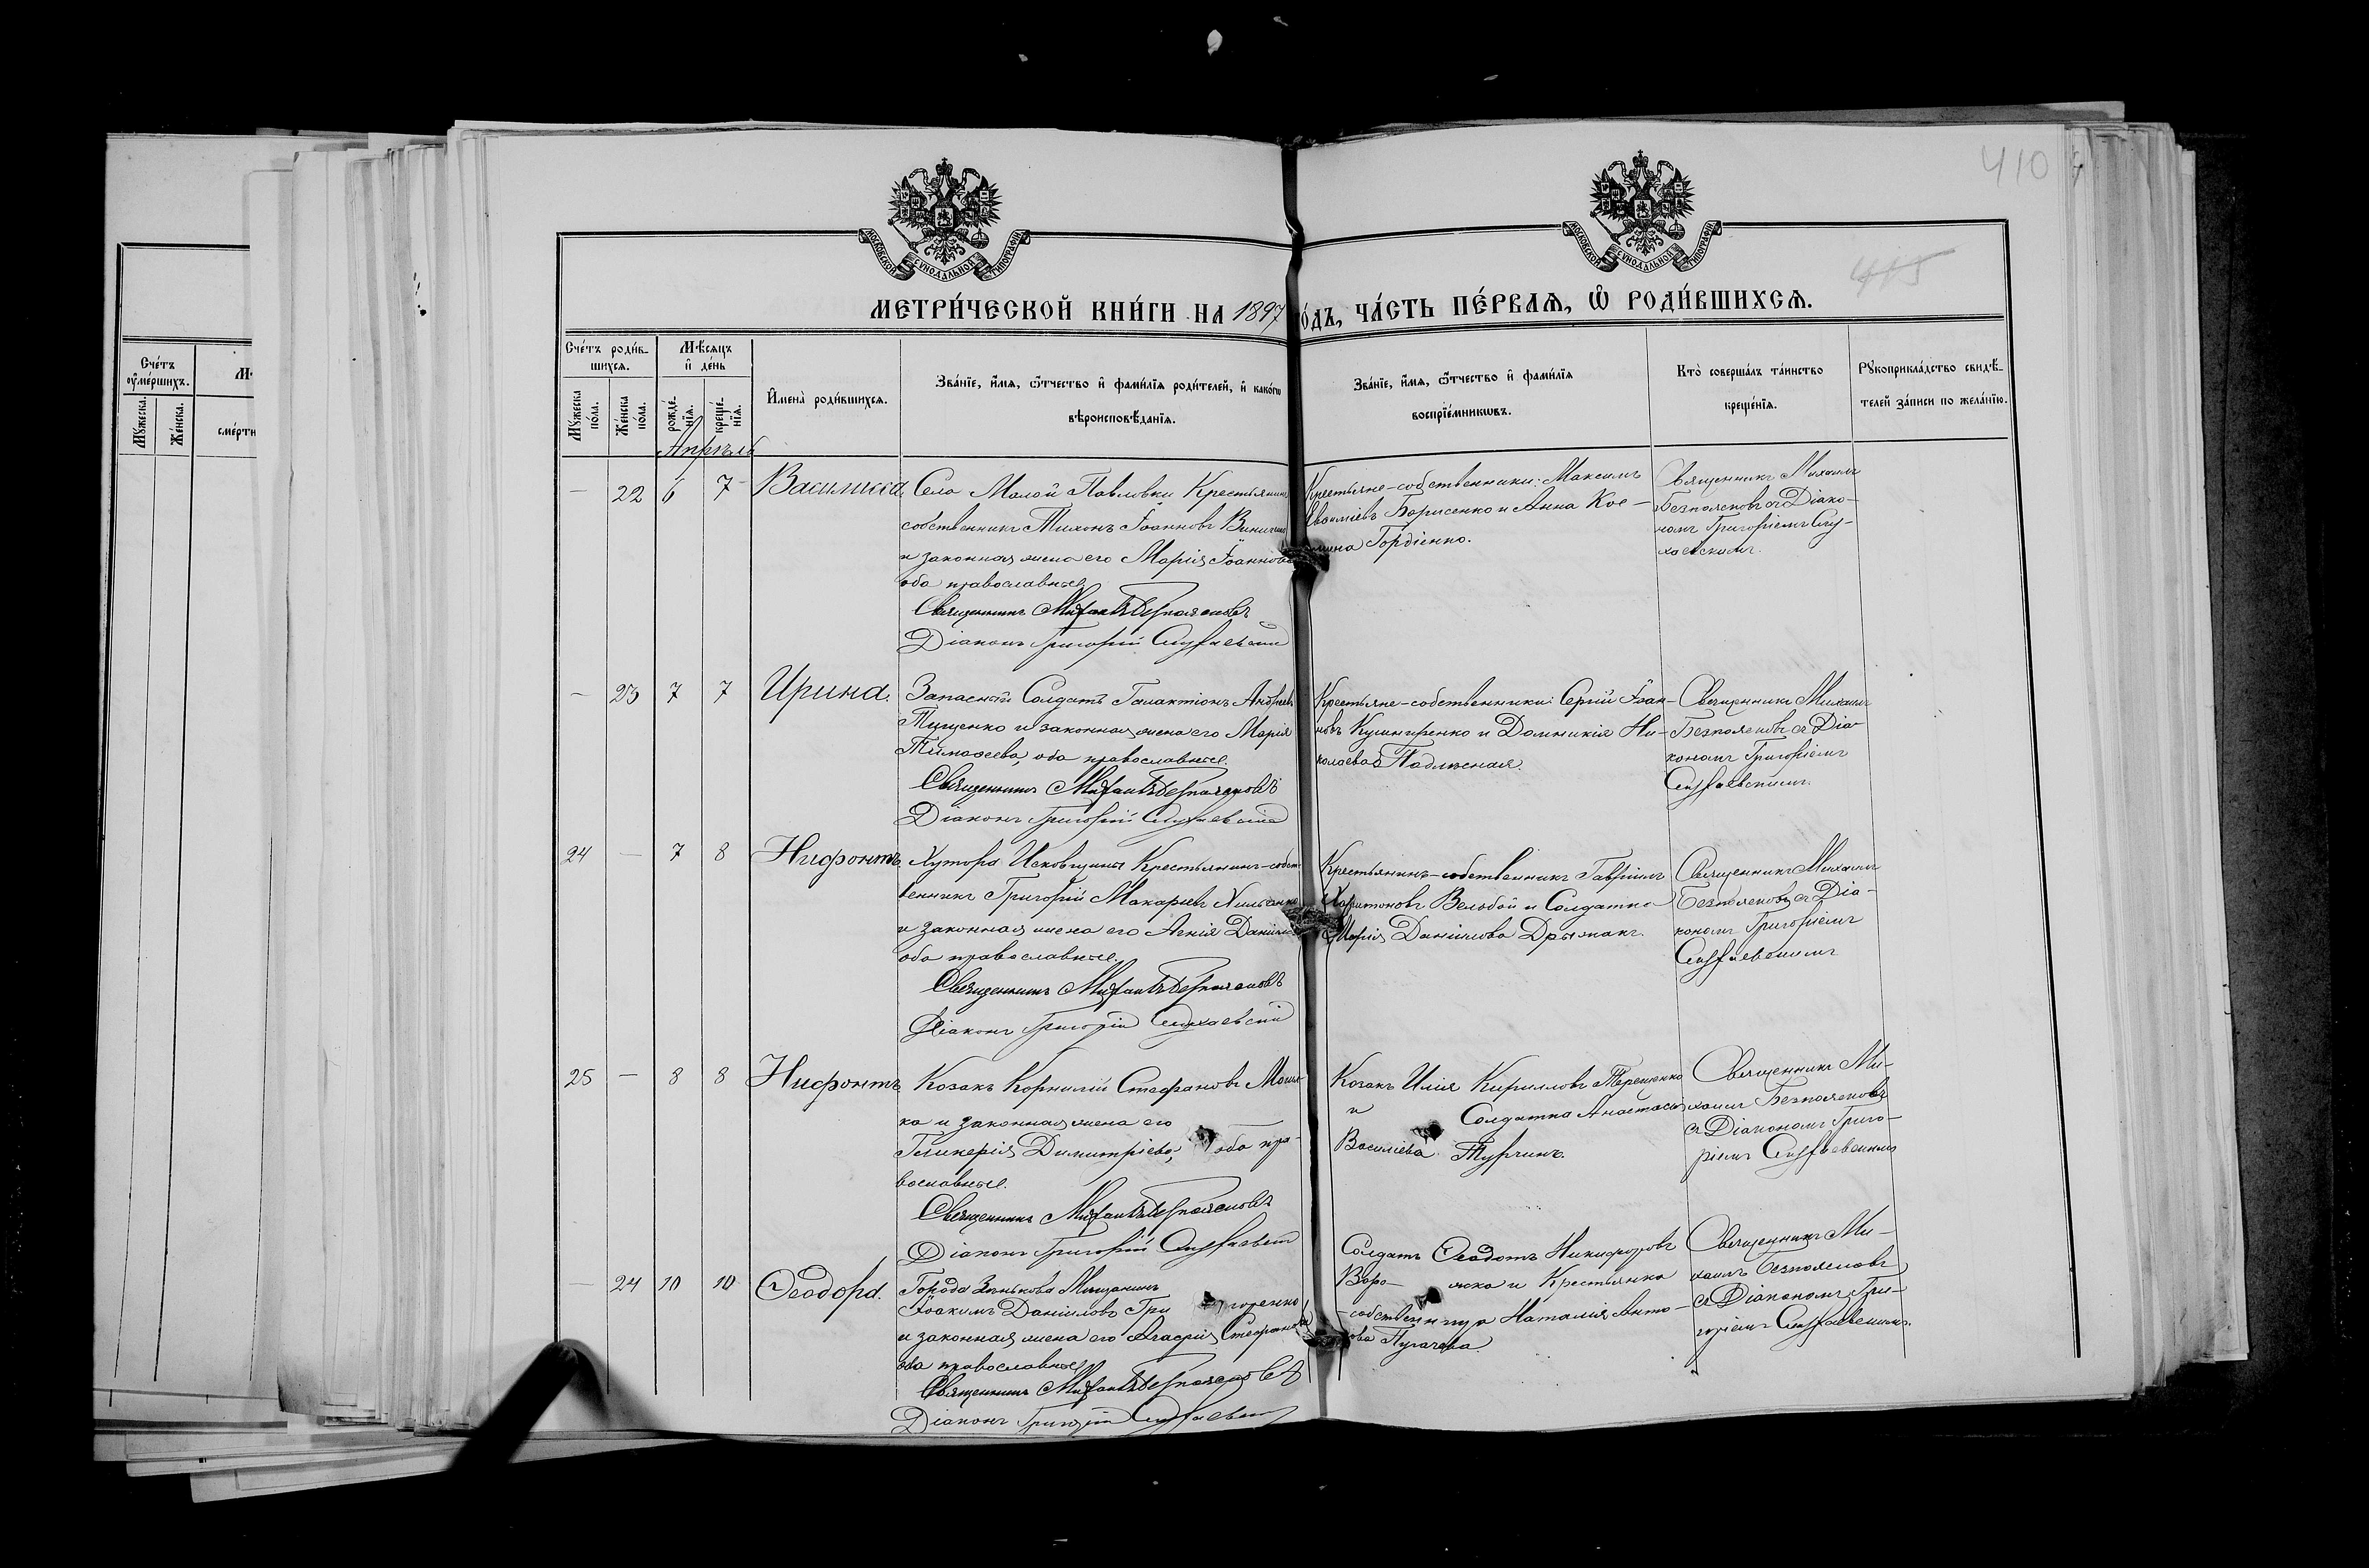 410
МОСКОВСКОЙ СѴНОДАЛЬНОЙ ТИПОГРАФІИ
МОСКОВСКОЙ СѴНОДАЛЬНОЙ ТИПОГРАФІИ
415
МЕТРИ́ЧЕСКОЙ КНИ́ГИ НА 1897 ГО́ДЪ, ЧА́СТЬ ПЕ́РВАЯ, Ѽ РОДИ́ВШИХСЯ.
Сче́тъ ᲂу҆ме́ршихъ.
Му́жеска.
Же́нска.
Сче́тъ роди́в-
шихся.
Му́жеска пола.
Же́нска пола.
Мѣ́сяцъ
и҆ де́нь
рожде́-
нїя.
креще́-
нїя.
И҆мена̀ роди́вшихся.
Зва́нїе, и҆́мя, ѻ҆́тчество и҆ фами́лїя роди́телей, и҆ како́гѡ
вѣроисповѣ́данїя.
Зва́нїе, и҆́мя, ѻ҆́тчество и҆ фами́лїя
воспрїе́мникѡвъ.
Кто̀ соверша́лъ та́инство
креще́нїя.
Рꙋкоприкла́дство свидѣ́-
телей за́писи по жела́нїю.
Апрѣль
— 22 6 7 Василисса
Села Малой Павловки Крестьянинъ
собственникъ Тихонъ Іоанновъ
и законная жена его Марія Іоаннова
оба православные
Священникъ Михаилъ Безпоясновъ
Діаконъ Григорій
Крестьяне-собственники: Максимъ
Борисенко и Анна Кос-
мина Гордіенко.
Священникъ Михаилъ
Безпоясновъ съ Діако-
номъ Григоріемъ
— 23 7 7 Ирина.
Запасный Солдатъ Галактіонъ Андреевъ
Тищенко и законная жена его Марія
Тимоѳеева, оба православные.
Священникъ Михаилъ Безпоясновъ
Діаконъ Григорій
Крестьяне-собственники: Сергій Іоан-
новъ Кушниренко и Домникія Ни-
колаева Подлѣсная.
Священникъ Михаилъ
Безпоясновъ съ Діа-
кономъ Григоріемъ
24 — 7 8 Нифонтъ
Хутора Исковщины Крестьянинъ-собст-
венникъ Григорій Макарьевъ
и законная жена его Агнія Даніилова
оба православные.
Священникъ Михаилъ Безпоясновъ
Діаконъ Григорій
Крестьянинъ-собственникъ Гавріилъ
Харитоновъ Вельбой и Солдатка
Марія Даніилова
Священникъ Михаилъ
Безпоясновъ съ Діа-
кономъ Григоріемъ
25 — 8 8 Нифонтъ
Козакъ Корнилій Стефановъ
ка и законная жена его
Гликерія Димитріева, оба пра-
вославные.
Священникъ Михаилъ Безпоясновъ
Діаконъ Григорій
Козакъ Илія Кирилловъ Терещенко
и Солдатка Анастасія
Василіева Турчинъ.
Священникъ Ми-
хаилъ Безпоясновъ
съ Діакономъ Григо-
ріемъ
— 24 10 10 Ѳеодора.
Города Зѣнькова Мѣщанинъ
Іоакимъ Даніиловъ Григоренко
и законная жена его Агафія Стефанова
оба православные
Священникъ Михаилъ Безпоясновъ
Діаконъ Григорій
Солдатъ Ѳеодотъ Никифоровъ
и Крестьянка
-собственница Наталія Анто-
нова Пугачева
Священникъ Ми-
хаилъ Безпоясновъ
съ Діакономъ Гри-
горіемъ